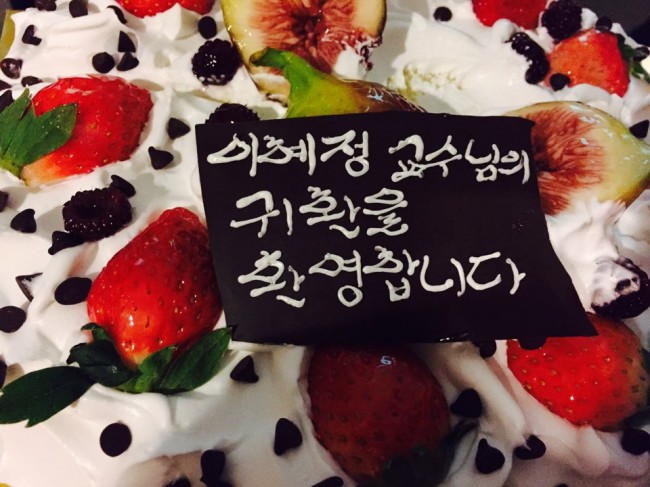 이혜정 교수님의
귀환을
환영합니다